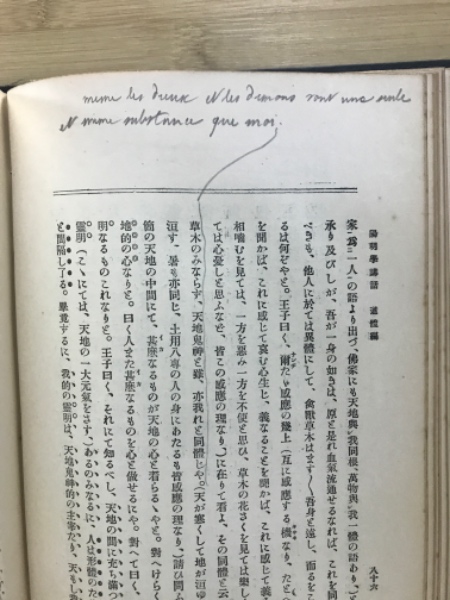 meme les dieux et les demons sont une seule
et meme substance que moi.
陽明學講話　道體編
八十六
家爲二一人一の語より出づ、佛家にも天地與レ我同根、萬物與レ我一體の語あり、
承り及びしが、吾が一身の如きは、原と是れ血氣流通せるなれば、これを同
べきも、他人に於ては異體にして、禽獸草木はます〱吾身と遠し、而るをこ
るは何ぞやと。王子曰く、爾たゞ感應の幾上(互に感應する機なり、たと
を聞かば、これに感じて哀む心生じ、義なることを聞かば、これに感じて
相喰むを見ては、一方を惡み一方を不便と思ひ、草木の花さくを見ては樂し
ては心憂しと思ふなど、皆この感應の理なり、)に在りて看よ、その同體と云
草木のみならず、天地鬼神と雖、亦我れと同體じや。(天が寒くして地が沍ゆ
沍す、暑も亦同じ、土用八專の人の身にあたるも皆感應の理なり、)請ひ問ふ
箇の天地の中間にて、甚麼なるものが天地の心と看らるゝやと。對へけらく
地的の心なりと。曰く人また甚麼なるものを心と做せるにや。對へて曰く、
明なるものこれなりと。曰く、それにて知るべし、天地の間に充ち塞つ
靈明(こゝにては、天地の一大元氣をさす、)あるのみなるに、人は形體のた
と間隔し了る。畢竟するに、我的の靈明は、天地鬼神的の主宰たり、天もし我